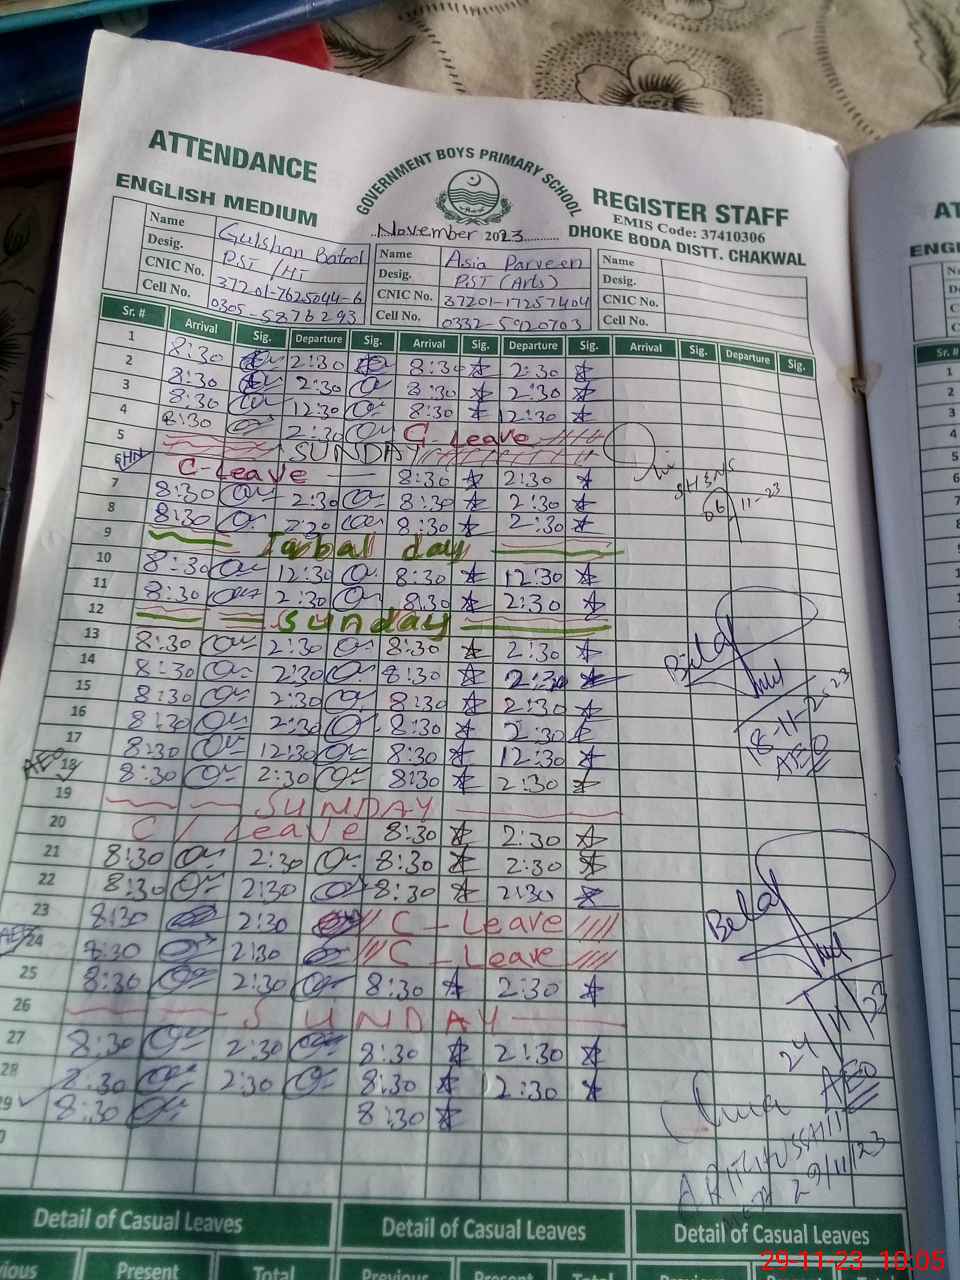 ATTENDANCE
GOVERNMENT BOYS PRIMARY SCHOOL
REGISTER STAFF
ENGLISH MEDIUM
EMIS Code: 37410306
November 2023
DHOKE BODA DISTT. CHAKWAL
Name Gulshan Batool Name Asia Parveen Name
Desig. PST/HT Desig. PST (Arts) Desig.
CNIC No. 37201-7625044-6 CNIC No. 37201-17257404 CNIC No.
Cell No. 0305-5876293 Cell No. 0332-5920703 Cell No.
Sr. # Arrival Sig. Departure Sig. Arrival Sig. Departure Sig. Arrival Sig. Departure Sig.
1 8:30 2:30 8:30 2:30
2 8:30 2:30 8:30 2:30
3 8:30 12:30 8:30 12:30
4 8:30 2:30 C-Leave
5 SUNDAY
C-Leave 8:30 2:30
7 8:30 2:30 8:30 2:30
8 8:30 2:30 8:30 2:30
06-11-23
9 Iqbal day
10 8:30 12:30 8:30 12:30
11 8:30 2:30 8:30 2:30
12 Sunday
13 8:30 2:30 8:30 2:30
14 8:30 2:30 8:30 2:30
15 8:30 2:30 8:30 2:30
16 8:30 2:30 8:30 2:30
17 8:30 12:30 8:30 12:30
AEO 18 8:30 2:30 8:30 2:30
18-11-2023
AEO
19 SUNDAY
20 C/Leave 8:30 2:30
21 8:30 2:30 8:30 2:30
22 8:30 2:30 8:30 2:30
23 8:30 2:30 C-Leave
AEO 24 8:30 2:30 C-Leave
25 8:30 2:30 8:30 2:30
26 SUNDAY
27 8:30 2:30 8:30 2:30
28 8:30 2:30 8:30 2:30
29 8:30 8:30
24/11/23
AEO
29/11/23
Detail of Casual Leaves Detail of Casual Leaves Detail of Casual Leaves
Present Total Previous Present Total
29-11-23 10:05